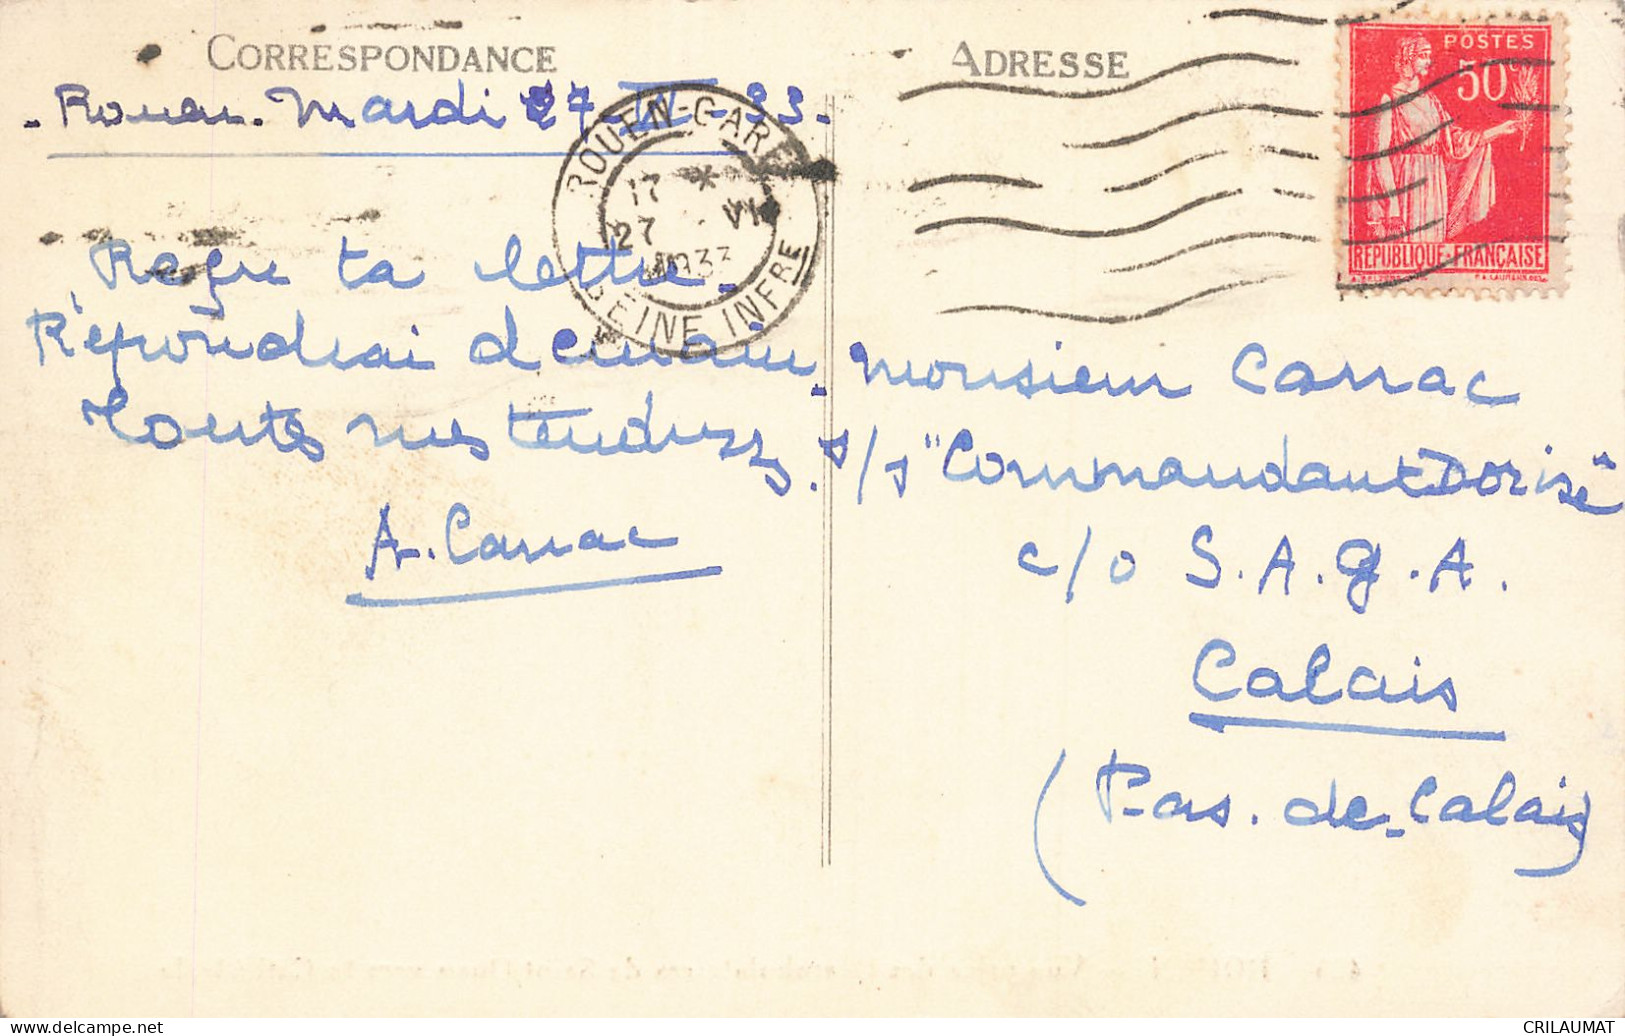 CORRESPONDANCE
- Rouen. Mardi 27-VI-33.
Reçu ta lettre.
Répondrai demain.
Toutes mes tendresses.
A. Carrac
ROUEN-GARE
17 *
27 VI
1933
SEINE INFRE
ADRESSE
POSTES
50c
REPUBLIQUE-FRANÇAISE
Monsieur Carrac
s/s "Commandant Dorise"
c/o S.A.G.A.
Calais
(Pas-de-Calais)
CRILAUMAT